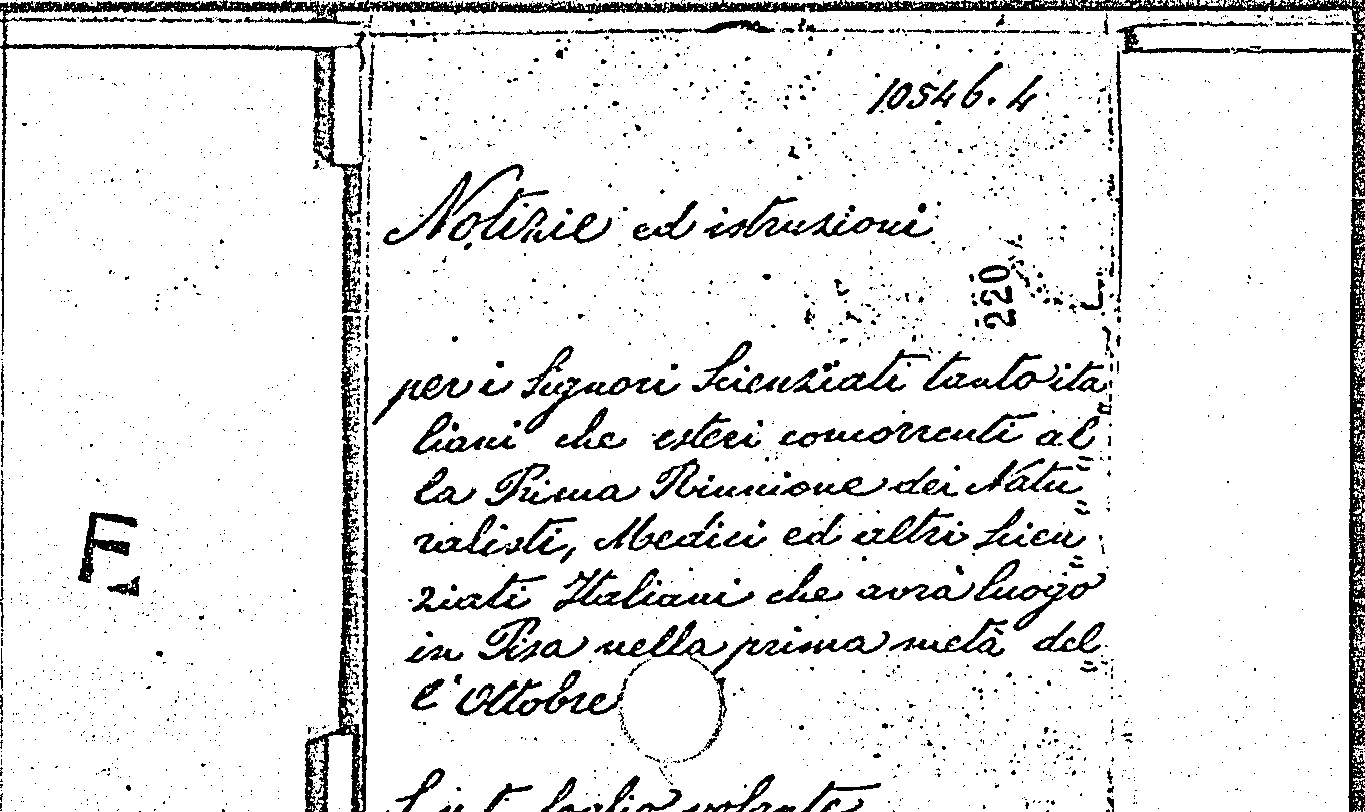 10546.4
Notizie ed istruzioni
220
per i Signori Scienziati tanto ita
liani che esteri concorrenti al=
la Prima Riunione dei Natu=
ralisti, Medici ed altri Scien=
ziati Italiani che avrà luogo
in Pisa nella prima metà del=
l'Ottobre
foglio volante